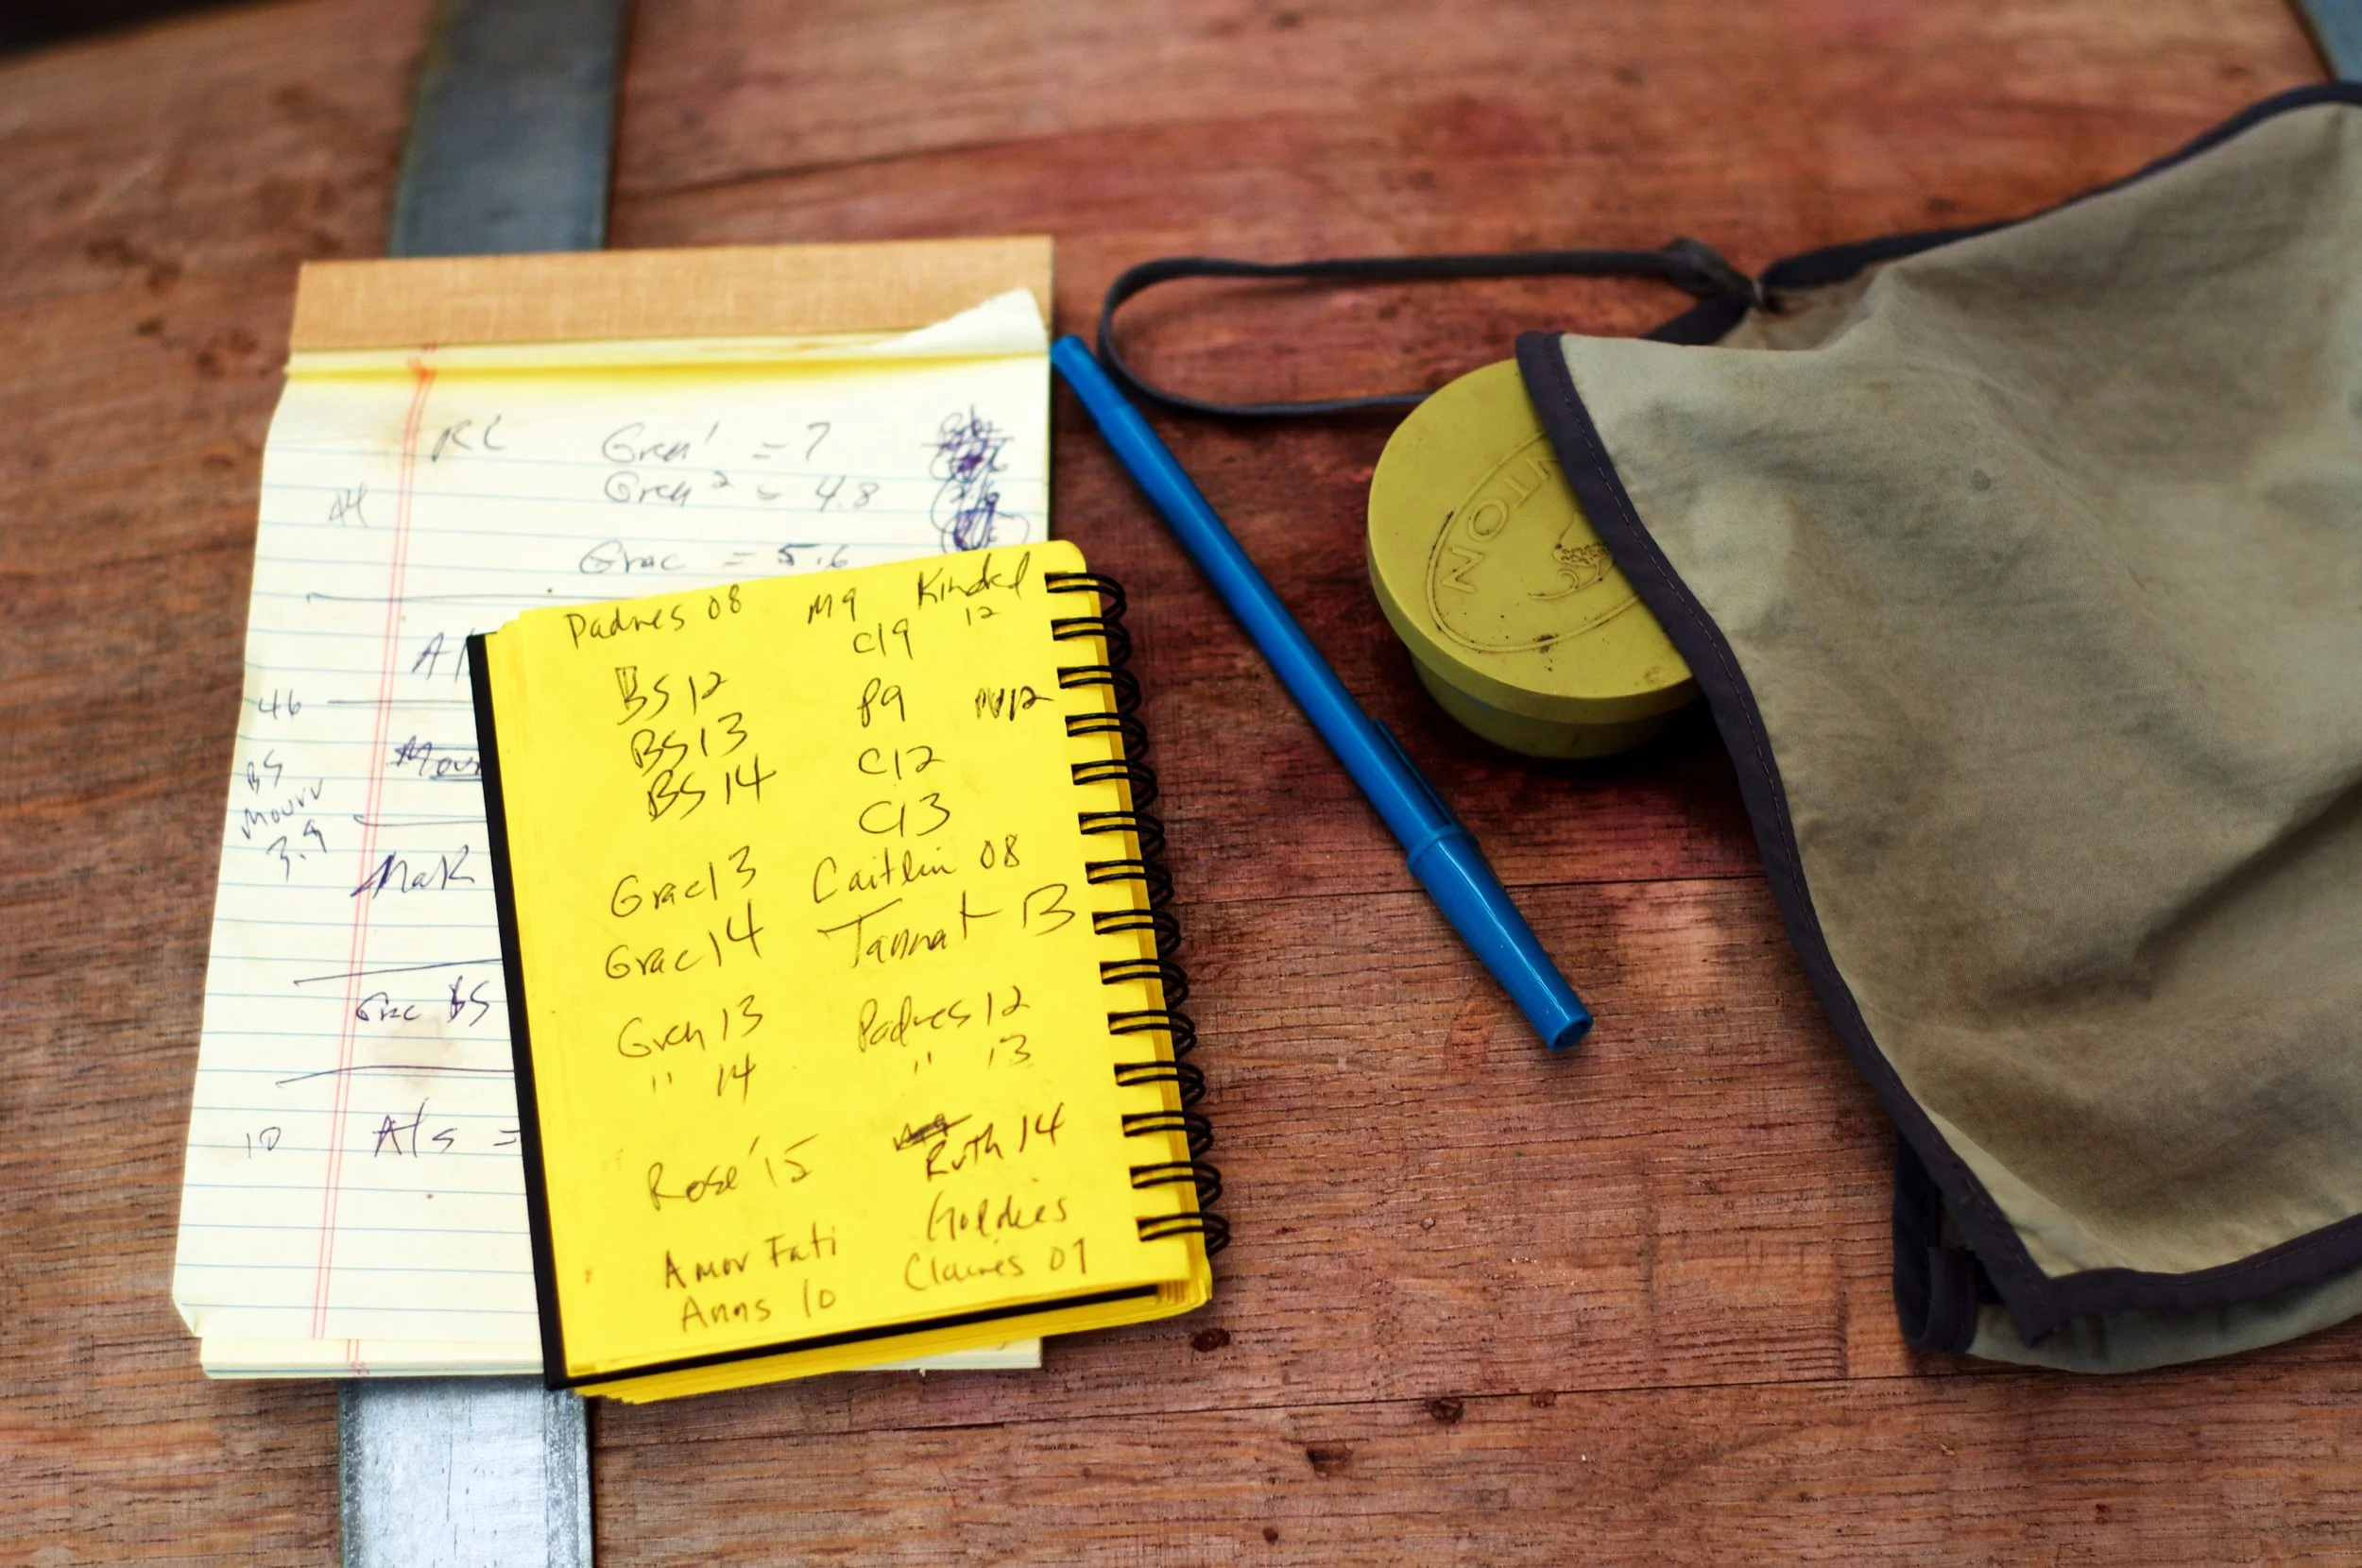 RC Gren' = 7
A4 Gren 2 = 4.8
Grac = 5.6
46
BS
Mourv
3.9
MaR
Grc BS
10 A/s =
Padres 08 M9 Kindred
12
C19
BS 12
P9
BS 13
C12
BS 14
C13
Grac 13
Caitlin 08
Grac 14
Tannat B
Gren 13
Padres 12
" 14
" 13
Rose '15
Ruth 14
Goldies
Amor Fati
Claires 07
Anns 10
NOIN